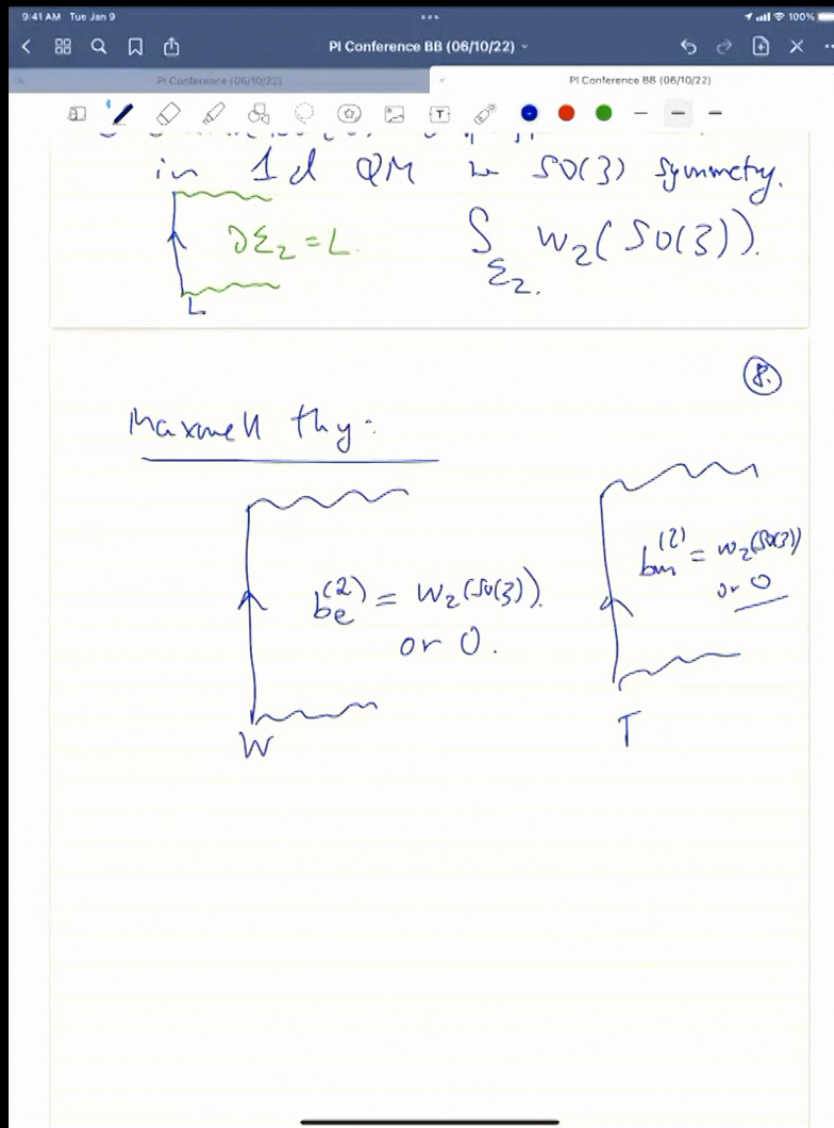 9:41 AM Tue Jan 9
100%
PI Conference BB (06/10/22)
PI Conference (06/10/22)
PI Conference BB (06/10/22)
in 1d QM w SO(3) symmetry.
∂Σ₂ = L.
∫_Σ₂. w₂(SO(3)).
L
8.
Maxwell thy:
b_e^(2) = w₂(SO(3)).
or 0.
W
b_m^(2) = w₂(SO(3))
or 0
T